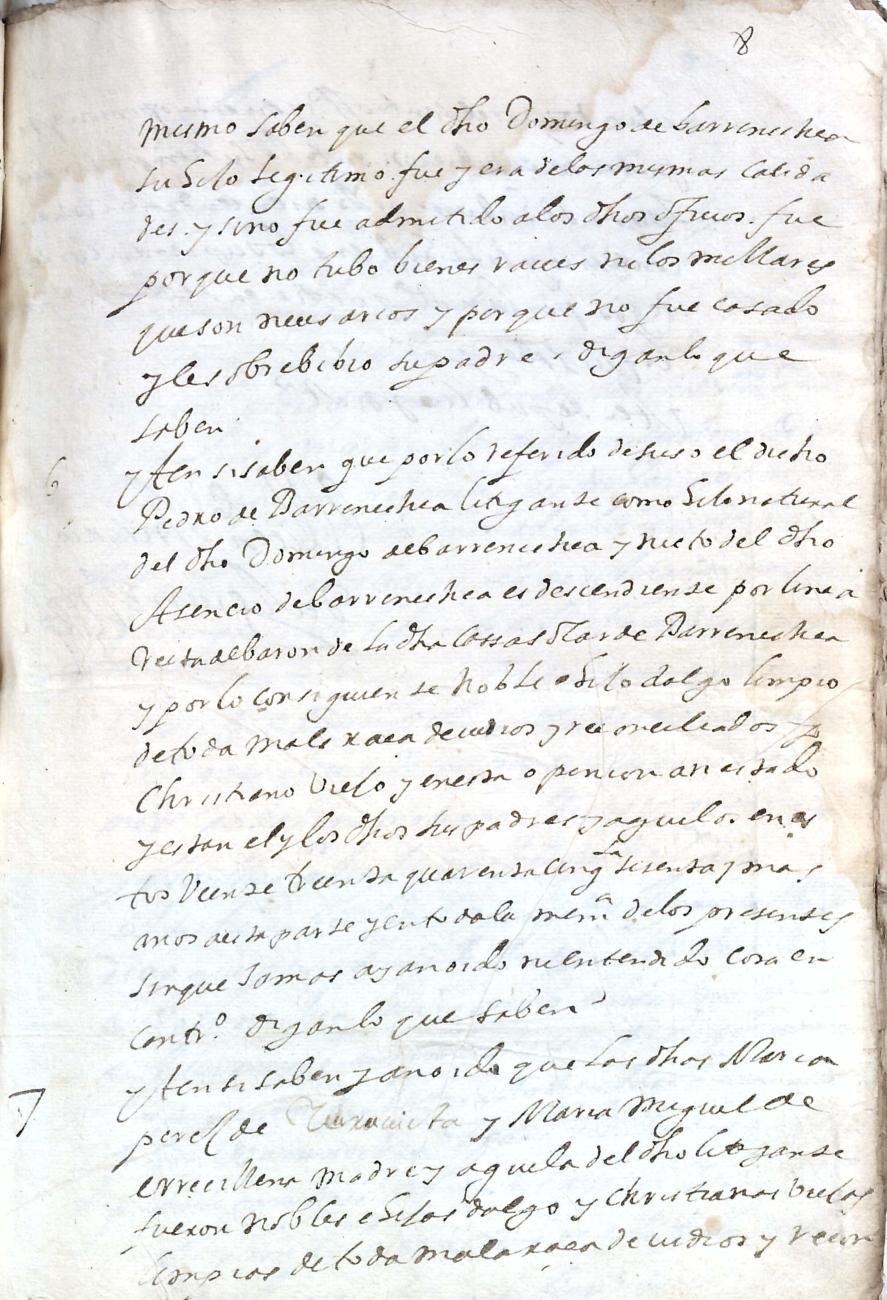 8
mismo saben que el dho Domingo de barrenechea
su Hilo legitimo fue y era de las mismas Calida
des. y sino fue admitido a los dhos oficios. fue
porque no tubo bienes raices ni los millares
que son necesarios y porque no fue casado
y le sobrebibio su padre, diganlo que
saben
6
yten si saben que por lo referido de suso el dicho
Pedro de Barrenechea litigante como Hilo natural
del dho Domingo de barrenechea y nieto del dho
Asencio de barrenechea es descendiente por linea
recta de baron de la dha Cassa solar de Barrenechea
y por lo consiguiente noble e Hilo dalgo limpio
de toda mala raca de iudios y reconciliados
Christiano Vielo y en esta openion an estado
y estan el y los dhos sus padres y aguelos en es
tos Veente treenta quarenta cinqta sesenta y mas
anos a esta parte y en toda la mema de los presentes
sin que Jamas ayan oido ni entendido cosa en
Contro. diganlo que saben
7
yten si saben y an oido que las dhas Maria
perez de y Maria Miguel de
errecillena madre y aguela del dho litigante
fueron nobles e Hilas dalgo y Christianas Vielas
limpias de toda mala raca de iudios y recon